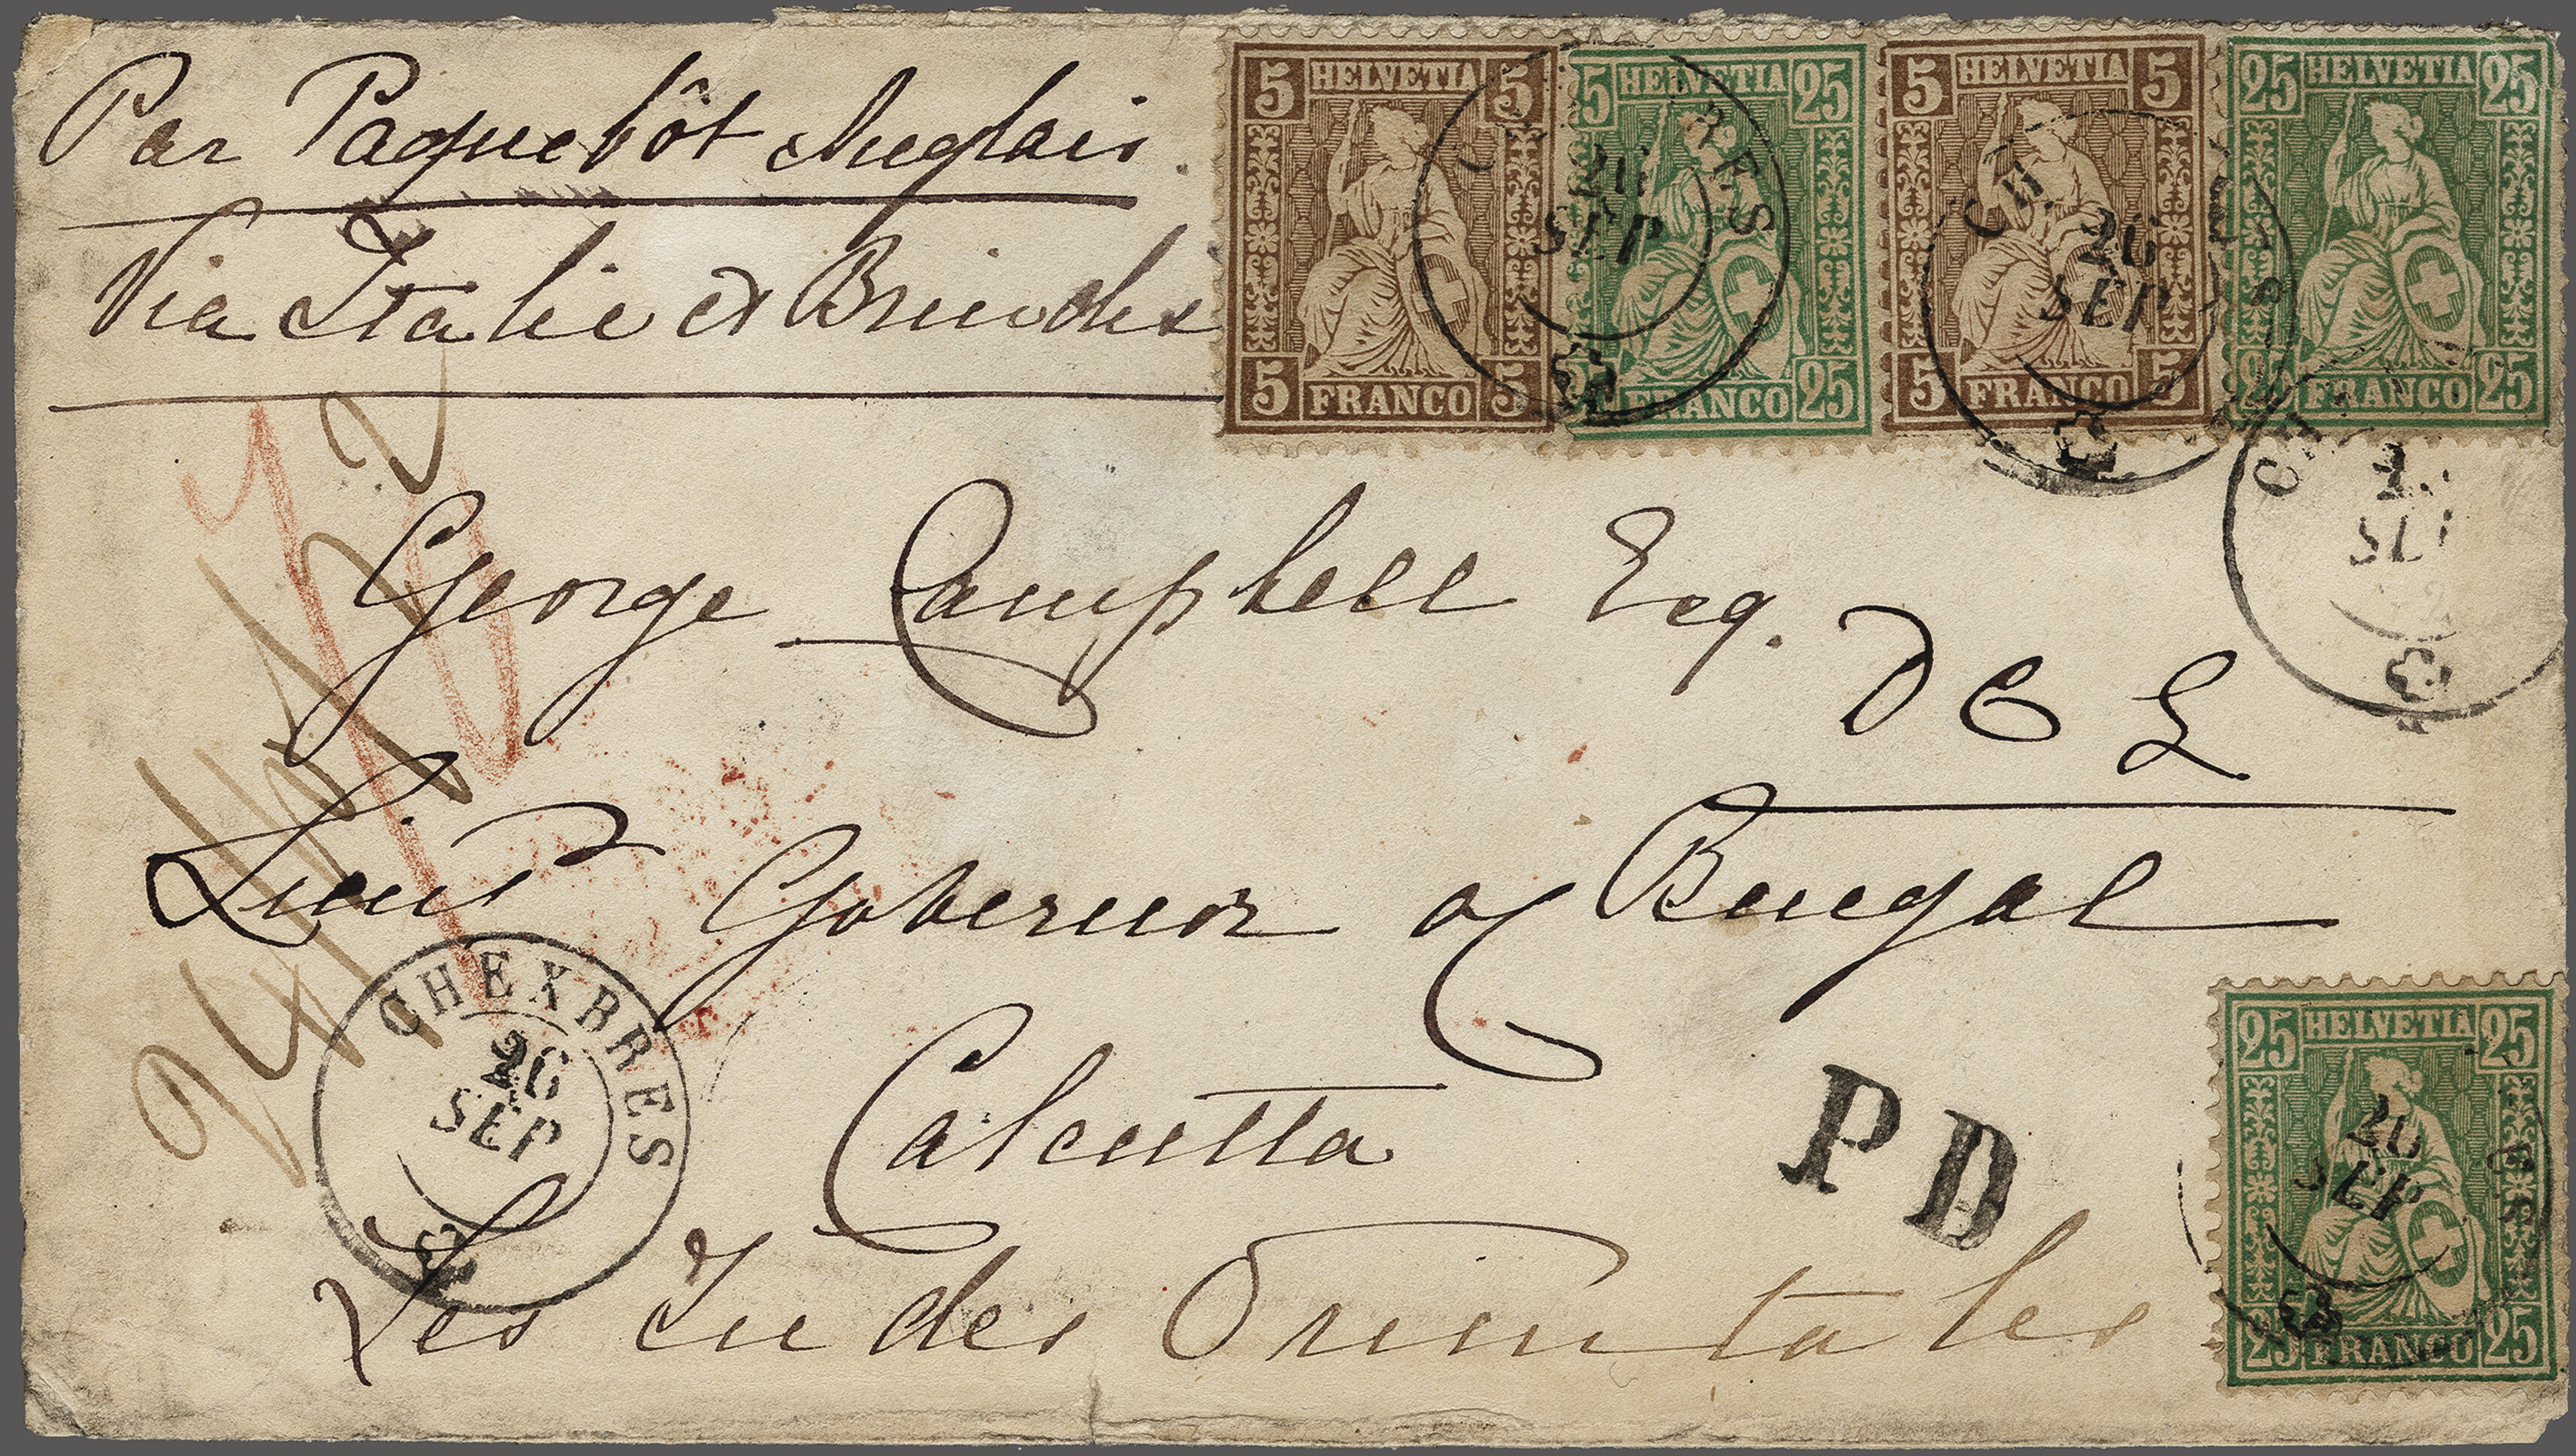 Par Paquebôt Anglais.
Via Italie et Brindisi
5 HELVETIA 5
5 FRANCO 5
25 HELVETIA 25
25 FRANCO 25
5 HELVETIA 5
5 FRANCO 5
25 HELVETIA 25
25 FRANCO 25
26 SEP
26 SEP
George Campbell Esq.
D C L
Lieut Governor of Bengal
Calcutta
Les Indes Orientales
CHEXBRES
26 SEP
PD
25 HELVETIA 25
26 SEP
25 FRANCO 25